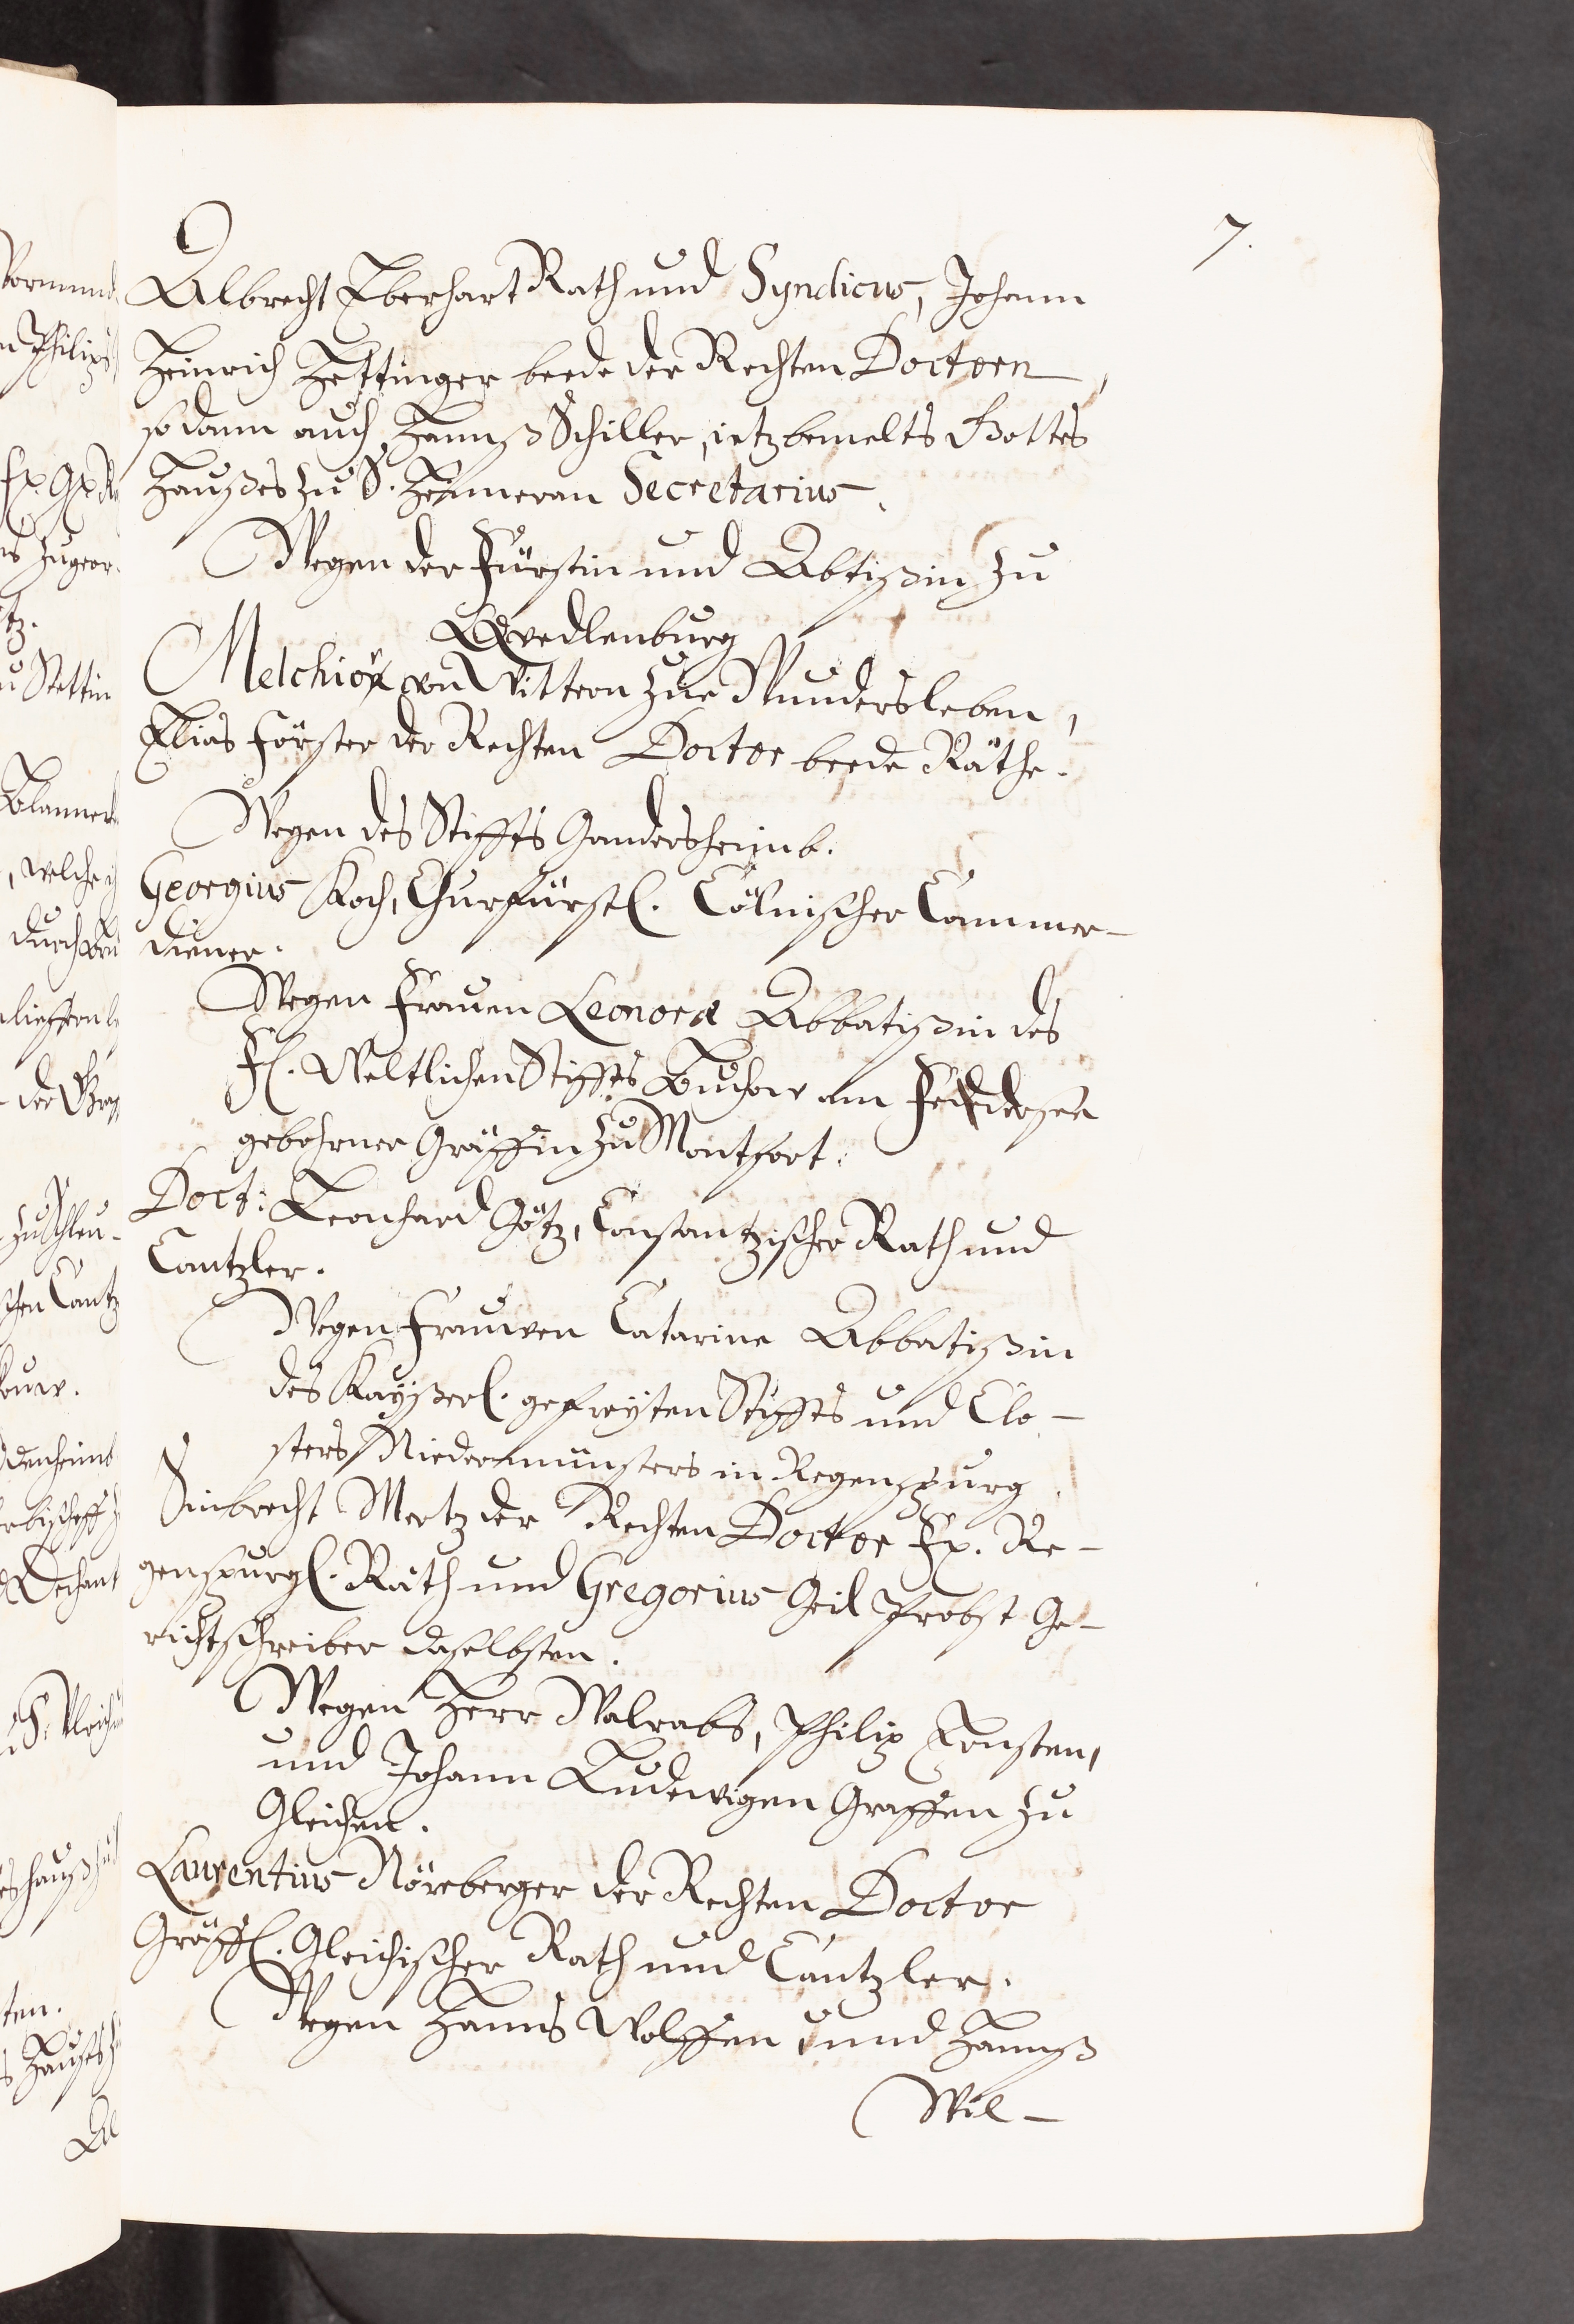 7.
Albrecht Eberhart Rath und Syndicus, Johann
Heinrich Hettinger beede der Rechten Doctorn,
so dann auch Hannß Schiller, ietzbemelts Gottes
Haußes zu S. Hemmeran Secretarius.
Wegen der Fürstin und Abtißin zu
Qvedlenburg
Melchior von Wittern zue Wundersleben,
Elias Förster der Rechten Doctor beede Räthe.
Wegen des Stiffts Gandersheimb.
Georgius Koch, Churfürstl. Cölnischer Cammer-
diener.
Wegen Frauen Leonora Abbatißin des
Fl. Weltlichen Stiffts Buchow am Federsee
gebohrner Gräffin zu Montfort.
Doct: Leonhard Götz, Constantzischer Rath und
Cantzler.
Wegen Frauwen Catarine Abbatißin
des Kayßerl. gefreyten Stiffts und Clo-
sters Niedermünsters in Regenspurg
Sinbrecht Mertz der Rechten Doctor Fr. Re-
genspurgl. Rath und Gregorius Geil Probst Ge-
richtschreiber daselbsten.
Wegen Herr Walrabs, Philip Ernsten,
und Johann Ludewigen Graffen zu
Gleichen.
Laurentius Nörnberger der Rechten Doctor
Gräffl. Gleichischer Rath und Cantzler.
Wegen Hanns Wolffen, und Hannß
Wil-